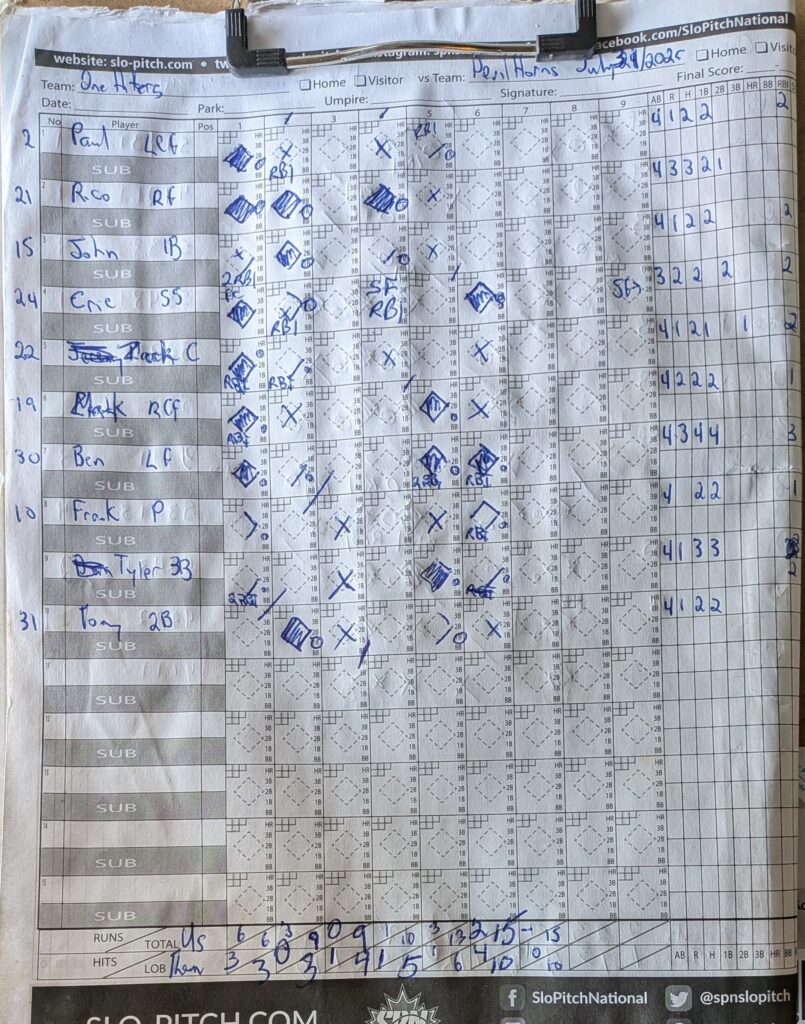 website: slo-pitch.com • tw
acebook.com/SloPitchNational
Team: One Hiters Home Visitor vs Team: Devil Horns July 31/2025 Home Visit
Date: Park: Umpire: Signature: Final Score:
No Player Pos 1 3 5 6 7 8 9 AB R H 1B 2B 3B HR BB RBI
2 Paul LCF RBI RBI 4 1 2 2 2
SUB
21 Rico RF 4 3 3 2 1
SUB
15 John 1B 2RBI 4 1 2 2 2
SUB
24 Eric SS FC RBI SF RBI SF> 3 2 2 2 2
SUB
22 C RBI RBI 4 1 2 1 1 2
SUB
19 RCF RBI 4 2 2 2 1
SUB
30 Ben LF 2RBI RBI 4 3 4 4 3
SUB
10 Frank P RBI 4 2 2 1
SUB
Tyler 3B 2RBI 4 1 3 3 2
SUB
31 Tony 2B 4 1 2 2
SUB
11
SUB
12
SUB
13
SUB
14
SUB
15
SUB
RUNS TOTAL Us 6 6 3 9 0 9 1 10 3 13 2 15 - 15
HITS LOB Them 3 3 0 3 1 4 1 5 1 6 4 10 0 10
AB R H 1B 2B 3B HR BB
SLO-PITCH.COM SPN SloPitchNational @spnslopitch